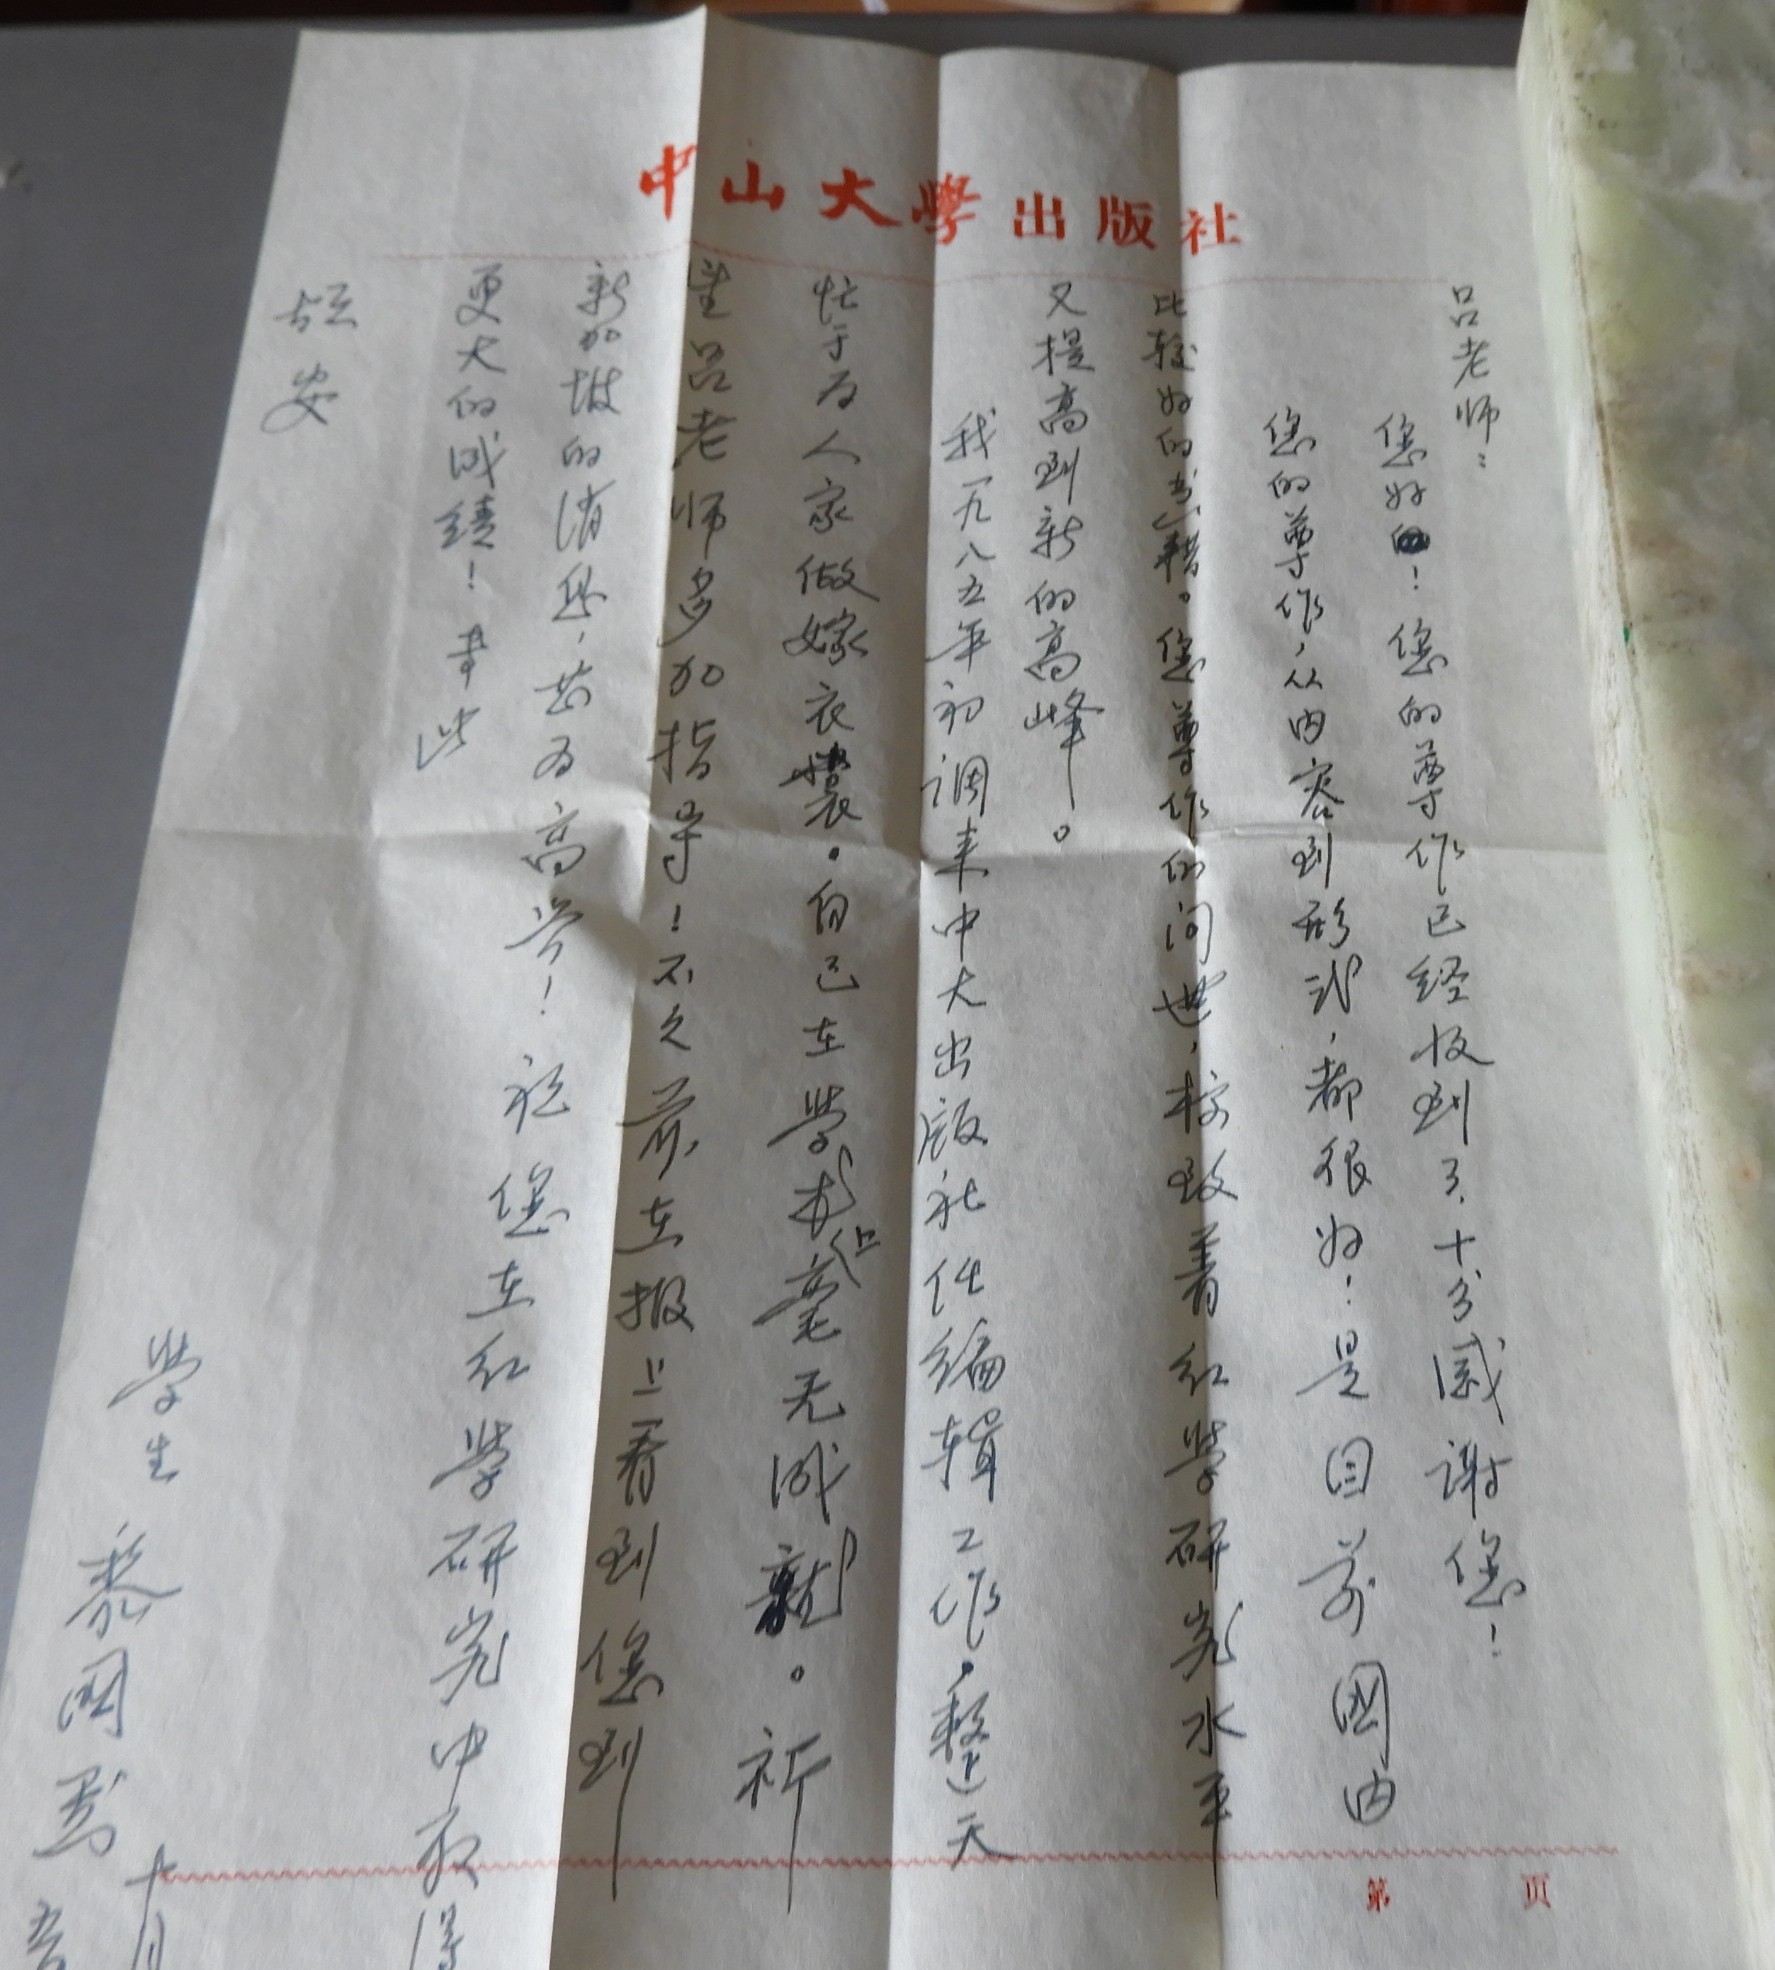 中山大學出版社
吕老师：
您好！您的尊作已经收到了，十分感谢您！
您的尊作，从内容到形式，都很好！是目前国内
比较好的书籍。您尊作的问世，标致着红学研究水平
又提高到新的高峰。
我一九八五年初调来中大出版社任编辑工作，整天
忙于为人家做嫁衣裳。自己在学术上毫无成就。祈
望吕老师多加指导！不久前在报上看到您到
新加坡的消息，甚为高兴！祝您在红学研究中取得
更大的成绩！专此
安
学生 黎国
十月
第 页